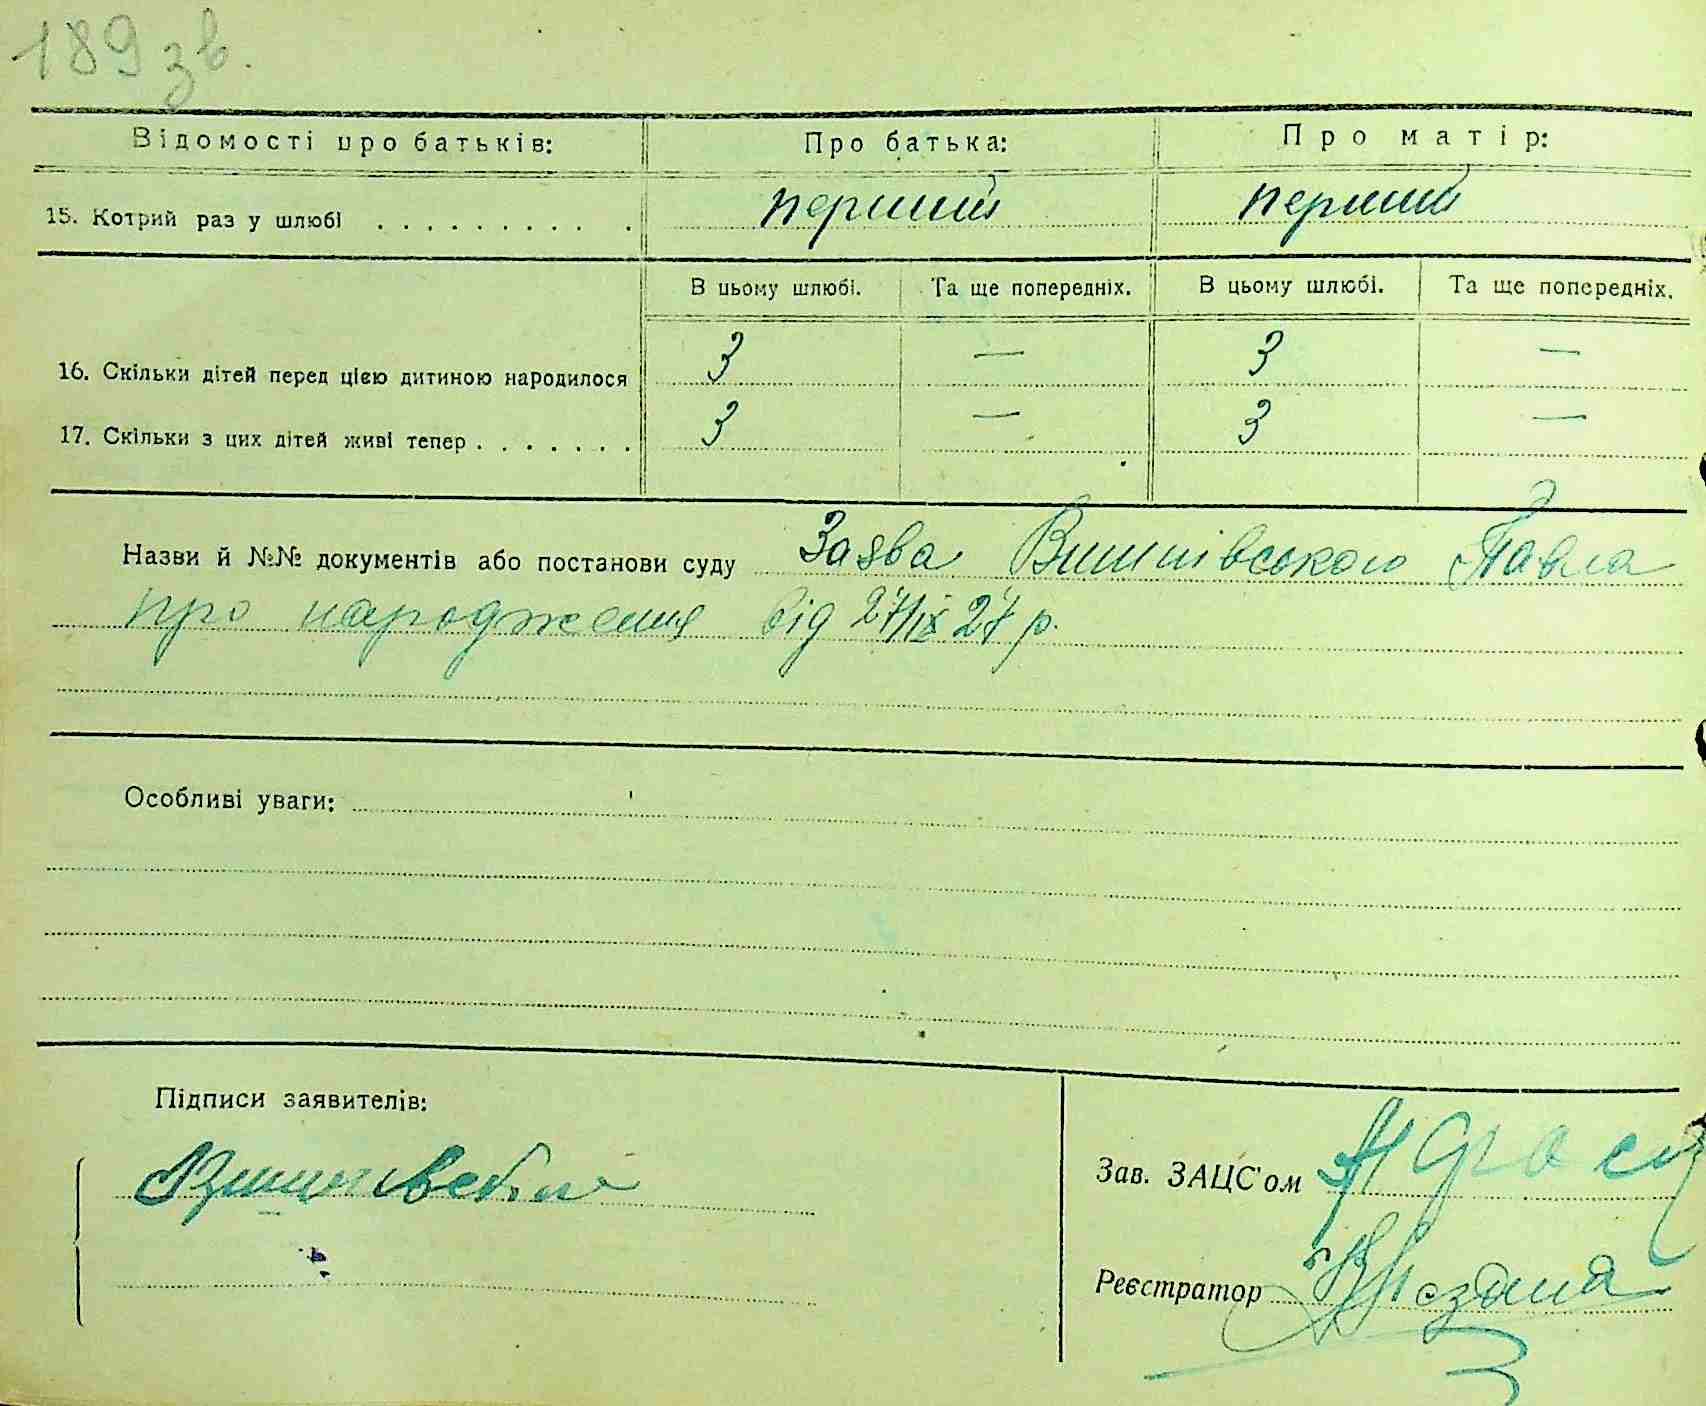 189 зв.
Відомості про батьків: Про батька: Про матір:
15. Котрий раз у шлюбі . . . . . . . . . . перший перший
В цьому шлюбі. Та ще попередніх. В цьому шлюбі. Та ще попередніх.
16. Скільки дітей перед цією дитиною народилося 3 — 3 —
17. Скільки з цих дітей живі тепер . . . . . . . 3 — 3 —
Назви й №№ документів або постанови суду Заява Вишнівського Павла
про народження від 27/ІХ 27 р.
Особливі уваги:
Підписи заявителів:
Зав. ЗАЦС'ом
Реєстратор